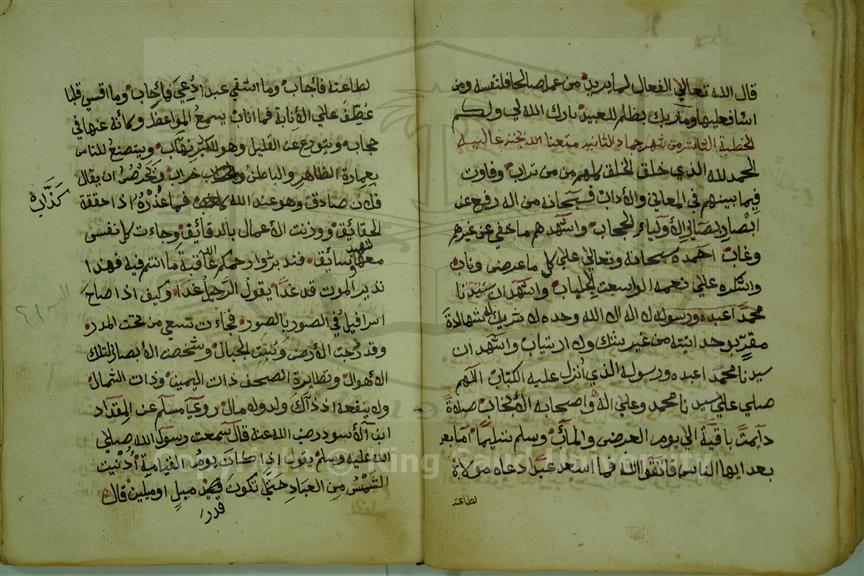 قال الله تعالي الفعال لما يريد من عمل صالحا فلنفسه ومن
اسا فعليها وما ربك بظلام للعبيد بارك الله لي ولكم
الخطبة الثالثة من شهر جماد الثانيه متعنا الله بختم عاليه
الحمد لله الذي خلق الخلق كلهم من من تراب وفاوت
فيما بينهم في المعاني والاداب فسبحانه من اله رفع عن
ابصار بصائر الاولياء الحجاب واشهدهم ما خفي عن غيرهم
وغاب احمده سبحانه وتعالي علي كل ما عرض وناب
واشكره علي نعمه الواسعت الجلباب واشهد ان سيدنا
محمدا عبده ورسوله لا اله الا الله وحده لا شريك له شهادة
مقر بوحدانيته من غير شك ولا ارتياب واشهد ان
سيدنا محمدا عبده ورسوله الذي انزل عليه الكتاب اللهم
صلي علي سيدنا محمد وعلي اله واصحابه الانجاب صلاة
دايمتا باقية الي يوم العرض والمآب وسلم تسليما اما بعد
بعد ايها الناس فاتقوا الله فما اسعد عبدا دعاه مولاه
لطاعته
لطاعته فأجاب وما اشقي عبدا دعي فما اجاب وما اقسي قلبا
عطف علي الانابة فما اناب يسمع المواعظ وكأنه عنها في
حجاب ويتورع عن القليل وهو للكثير نهاب ويتصنع للناس
بعمارة الظاهر والباطن خراب ويحرص ان يقال
فلان صادق وهو عند الله فما عذره اذا حققة
كذاب
الحقائق ووزنت الاعمال بالدقائق وجاءت كل نفس
معها سائق وشهيد فتدبروا رحمكم الله عاقبة ما انتم فيه فهذا
نذير الموت قد غدا يقول الرحيل غدا وكيف اذا صاح
اسرافيل في الصور بالصور فجاءت تسعي من تحت المدر
وقد رجت الارض وبست الجبال وشخصت الابصار لتلك
الاهوال وتطايرة الصحف ذات اليمين وذات الشمال
ولا ينفعه اذ ذاك ولد ولا مال روي مسلم عن المقداد
ابن الاسود رضي الله عنه قال سمعت رسول الله صلي
الله عليه وسلم يقول اذا كان يوم القيامة أدنيت
الشمس من العباد حتي تكون قدر ميل او ميلين قال
قدر